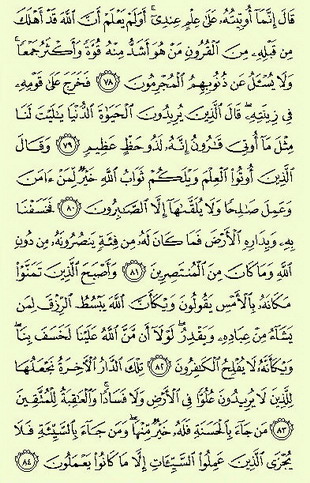 قَالَ إِنَّمَآ أُوتِيتُهُۥ عَلَىٰ عِلْمٍ عِندِىٓ ۚ أَوَلَمْ يَعْلَمْ أَنَّ ٱللَّهَ قَدْ أَهْلَكَ
مِن قَبْلِهِۦ مِنَ ٱلْقُرُونِ مَنْ هُوَ أَشَدُّ مِنْهُ قُوَّةً وَأَكْثَرُ جَمْعًا ۚ
وَلَا يُسْـَٔلُ عَن ذُنُوبِهِمُ ٱلْمُجْرِمُونَ ﴿٧٨﴾ فَخَرَجَ عَلَىٰ قَوْمِهِۦ
فِى زِينَتِهِۦ ۖ قَالَ ٱلَّذِينَ يُرِيدُونَ ٱلْحَيَوٰةَ ٱلدُّنْيَا يَٰلَيْتَ لَنَا
مِثْلَ مَآ أُوتِىَ قَٰرُونُ إِنَّهُۥ لَذُو حَظٍّ عَظِيمٍ ﴿٧٩﴾ وَقَالَ
ٱلَّذِينَ أُوتُوا۟ ٱلْعِلْمَ وَيْلَكُمْ ثَوَابُ ٱللَّهِ خَيْرٌ لِّمَنْ ءَامَنَ
وَعَمِلَ صَٰلِحًا وَلَا يُلَقَّىٰهَآ إِلَّا ٱلصَّٰبِرُونَ ﴿٨٠﴾ فَخَسَفْنَا
بِهِۦ وَبِدَارِهِ ٱلْأَرْضَ فَمَا كَانَ لَهُۥ مِن فِئَةٍ يَنصُرُونَهُۥ مِن دُونِ
ٱللَّهِ وَمَا كَانَ مِنَ ٱلْمُنتَصِرِينَ ﴿٨١﴾ وَأَصْبَحَ ٱلَّذِينَ تَمَنَّوْا۟
مَكَانَهُۥ بِٱلْأَمْسِ يَقُولُونَ وَيْكَأَنَّ ٱللَّهَ يَبْسُطُ ٱلرِّزْقَ لِمَن
يَشَآءُ مِنْ عِبَادِهِۦ وَيَقْدِرُ ۖ لَوْلَآ أَن مَّنَّ ٱللَّهُ عَلَيْنَا لَخَسَفَ بِنَا ۖ
وَيْكَأَنَّهُۥ لَا يُفْلِحُ ٱلْكَٰفِرُونَ ﴿٨٢﴾ تِلْكَ ٱلدَّارُ ٱلْءَاخِرَةُ نَجْعَلُهَا
لِلَّذِينَ لَا يُرِيدُونَ عُلُوًّا فِى ٱلْأَرْضِ وَلَا فَسَادًا ۚ وَٱلْعَٰقِبَةُ لِلْمُتَّقِينَ
﴿٨٣﴾ مَن جَآءَ بِٱلْحَسَنَةِ فَلَهُۥ خَيْرٌ مِّنْهَا ۖ وَمَن جَآءَ بِٱلسَّيِّئَةِ فَلَا
يُجْزَى ٱلَّذِينَ عَمِلُوا۟ ٱلسَّيِّـَٔاتِ إِلَّا مَا كَانُوا۟ يَعْمَلُونَ ﴿٨٤﴾